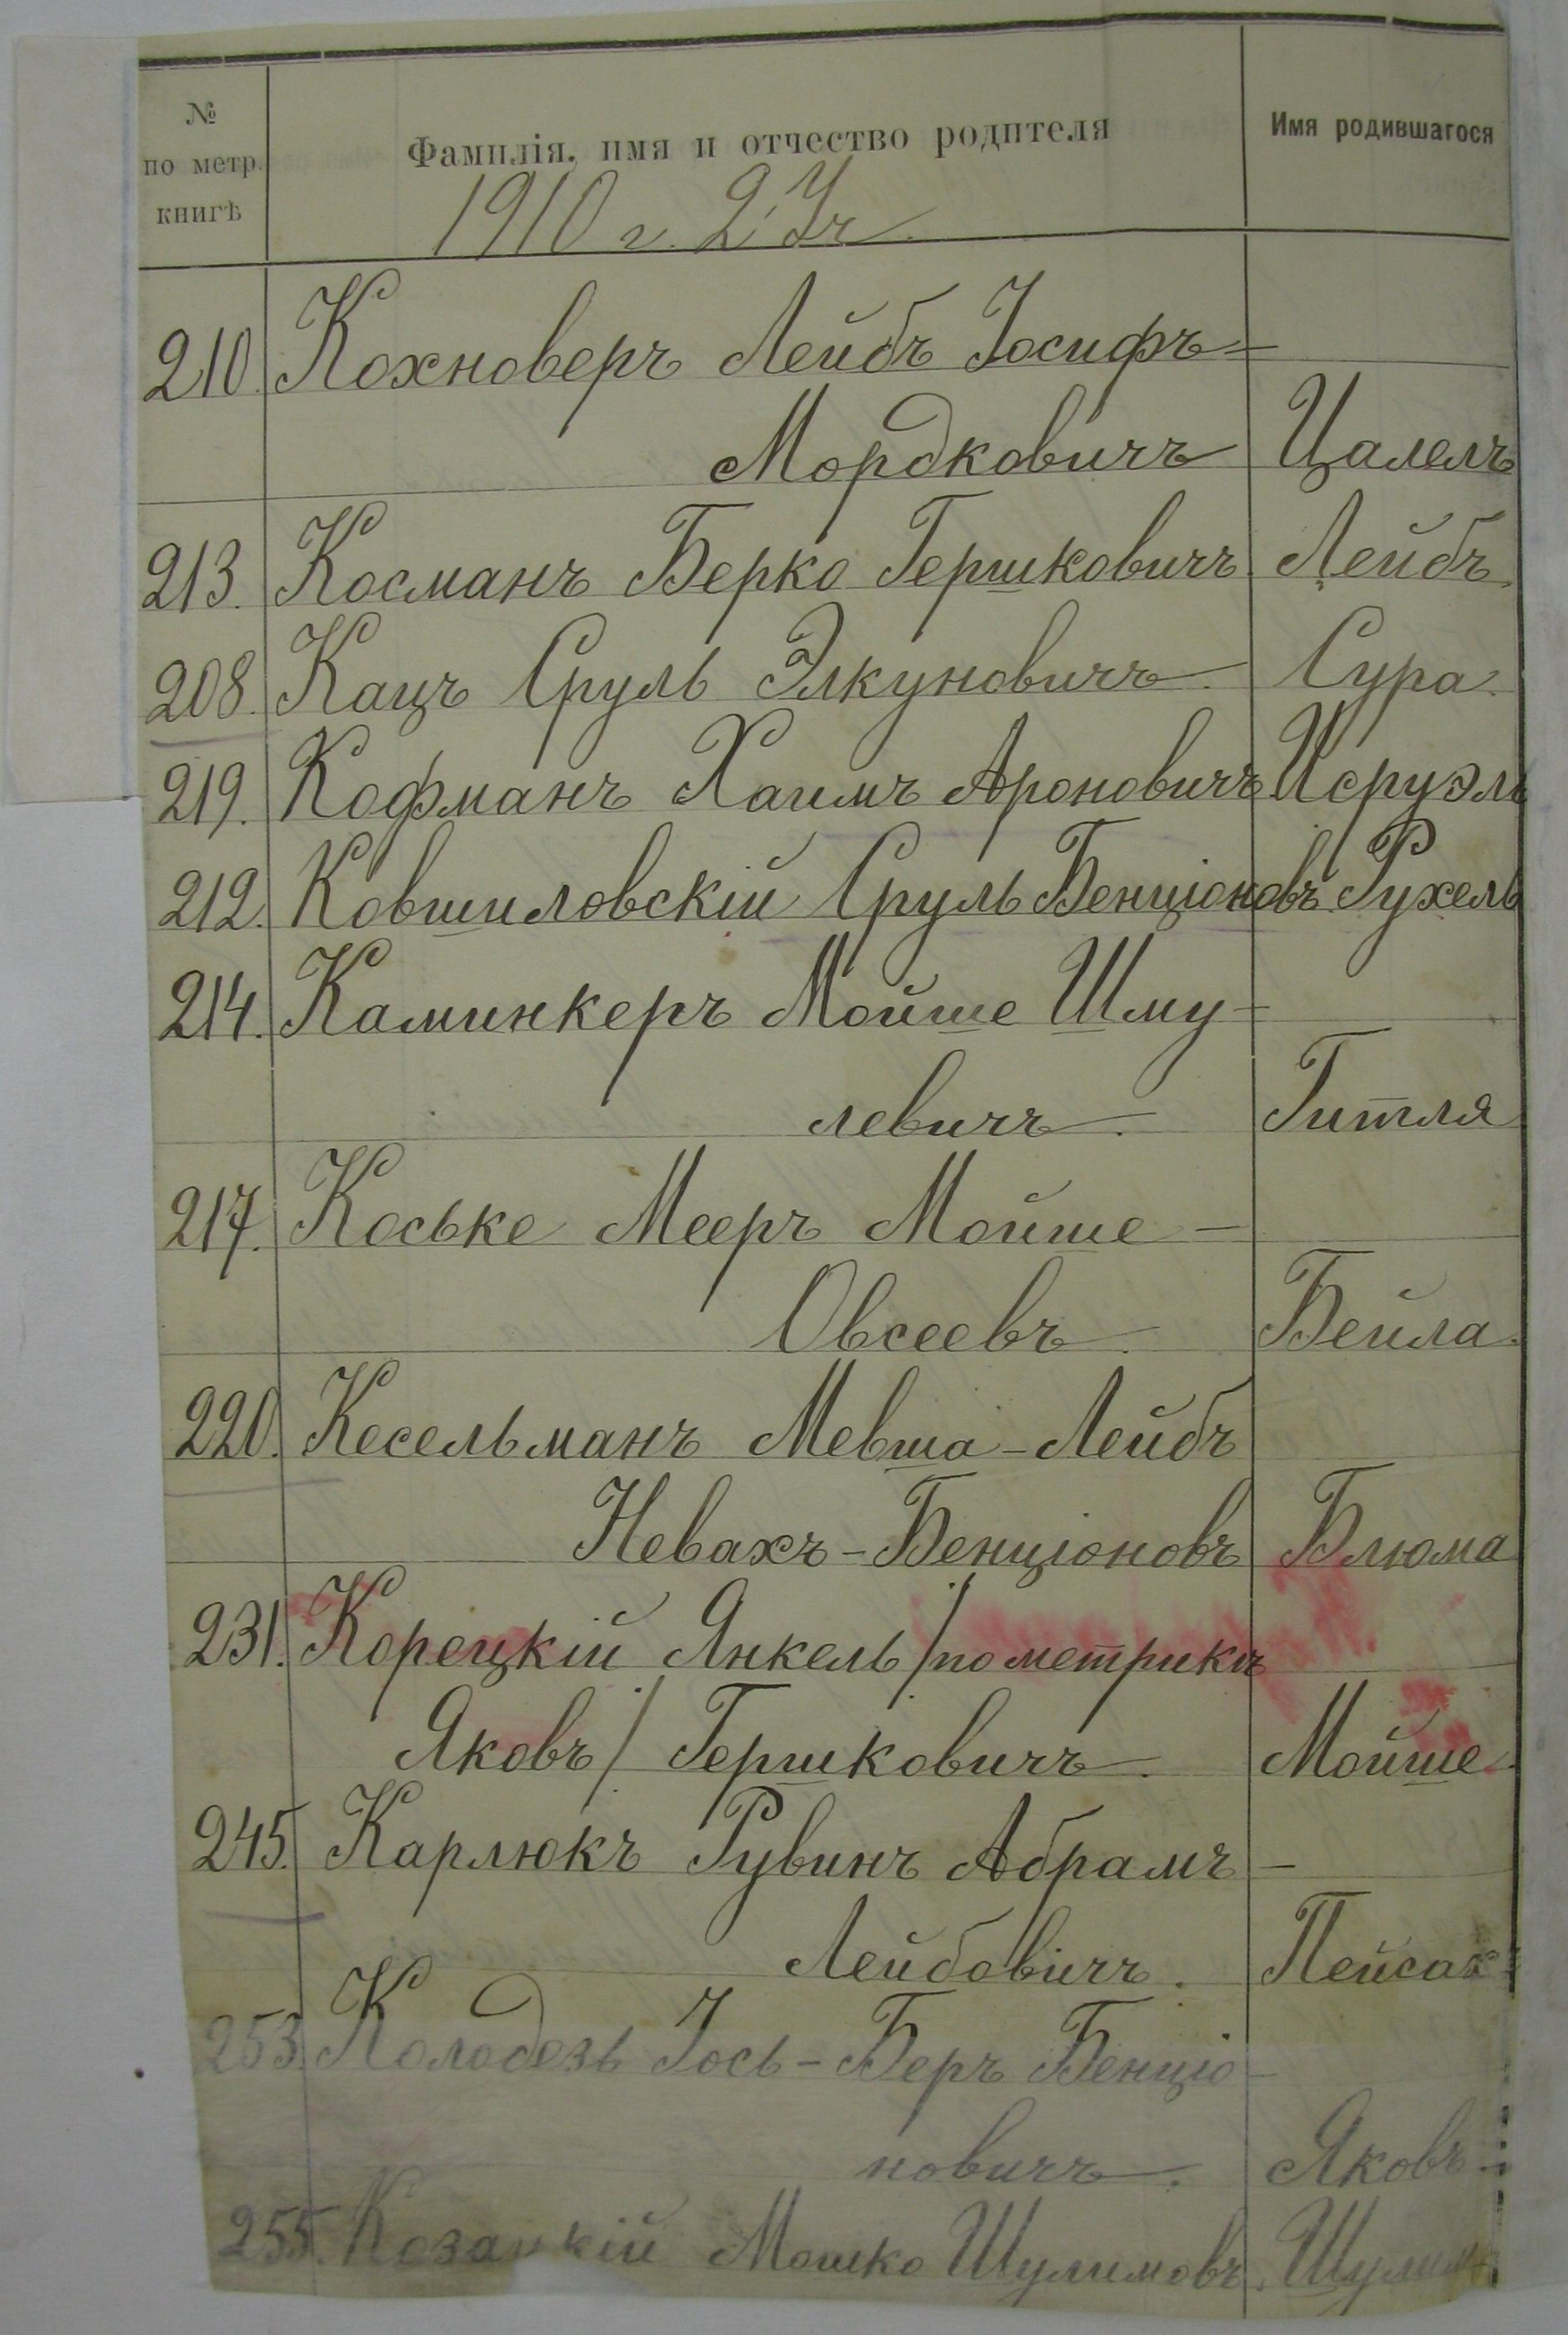 № по метр. книгѣ
Фамилія, имя и отчество родителя
Имя родившагося
1910 г. 2 Уч.
210. Кохноверъ Лейбъ Іосифъ-
Мордковичъ Цалелъ
213. Косманъ Берко Гершковичъ Лейбъ.
208. Кацъ Сруль Элкуновичъ. Сура.
219. Кофманъ Хаимъ Ароновичъ Исруэль
212. Ковшиловскій Сруль Бенціоновъ Рухель
214. Каминкеръ Мойше Шму-
левичъ. Гитля
217. Коське Мееръ Мойше -
Овсеевъ. Бейла.
220. Кесельманъ Мевша-Лейбъ
Невахъ-Бенціоновъ Блюма
231. Корецкій Янкель /по метрикѣ
Яковъ/ Гершковичъ. Мойше.
245. Карлюкъ Рувинъ Абрамъ-
Лейбовичъ. Пейсах
253. Колодезь Іось-Беръ Бенціо-
новичъ. Яковъ
255. Козацкій Мошко Шулимовъ. Шулим